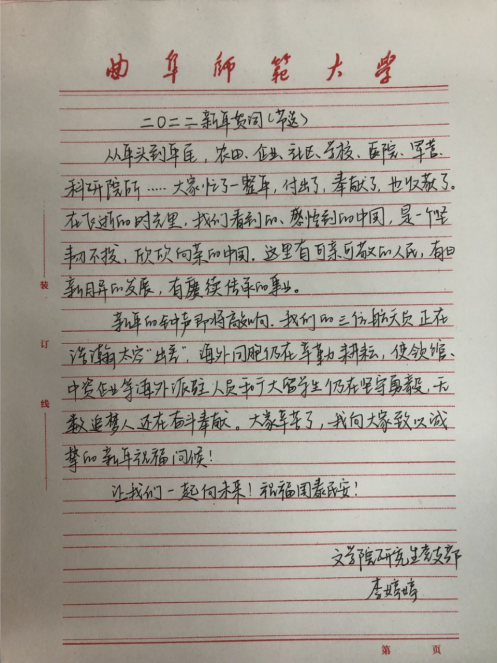 曲阜师范大学
二〇二二新年贺词(节选)
从年头到年尾，农田、企业、社区、学校、医院、军营、
科研院所……大家忙了一整年，付出了，奉献了，也收获了。
在飞逝的时光里，我们看到的、感悟到的中国，是一个坚
韧不拔、欣欣向荣的中国。这里有可亲可敬的人民，有日
新月异的发展，有赓续传承的事业。
新年的钟声即将敲响。我们的三位航天员正在
浩瀚太空“出差”，海外同胞仍在辛勤耕耘，使领馆、
中资企业等海外派驻人员和广大留学生仍在坚守勇毅，无
数追梦人还在奋斗奉献。大家辛苦了，我向大家致以诚
挚的新年祝福问候！
让我们一起向未来！祝福国泰民安！
文学院研究生党支部
李婷婷
装
订
线
第 页